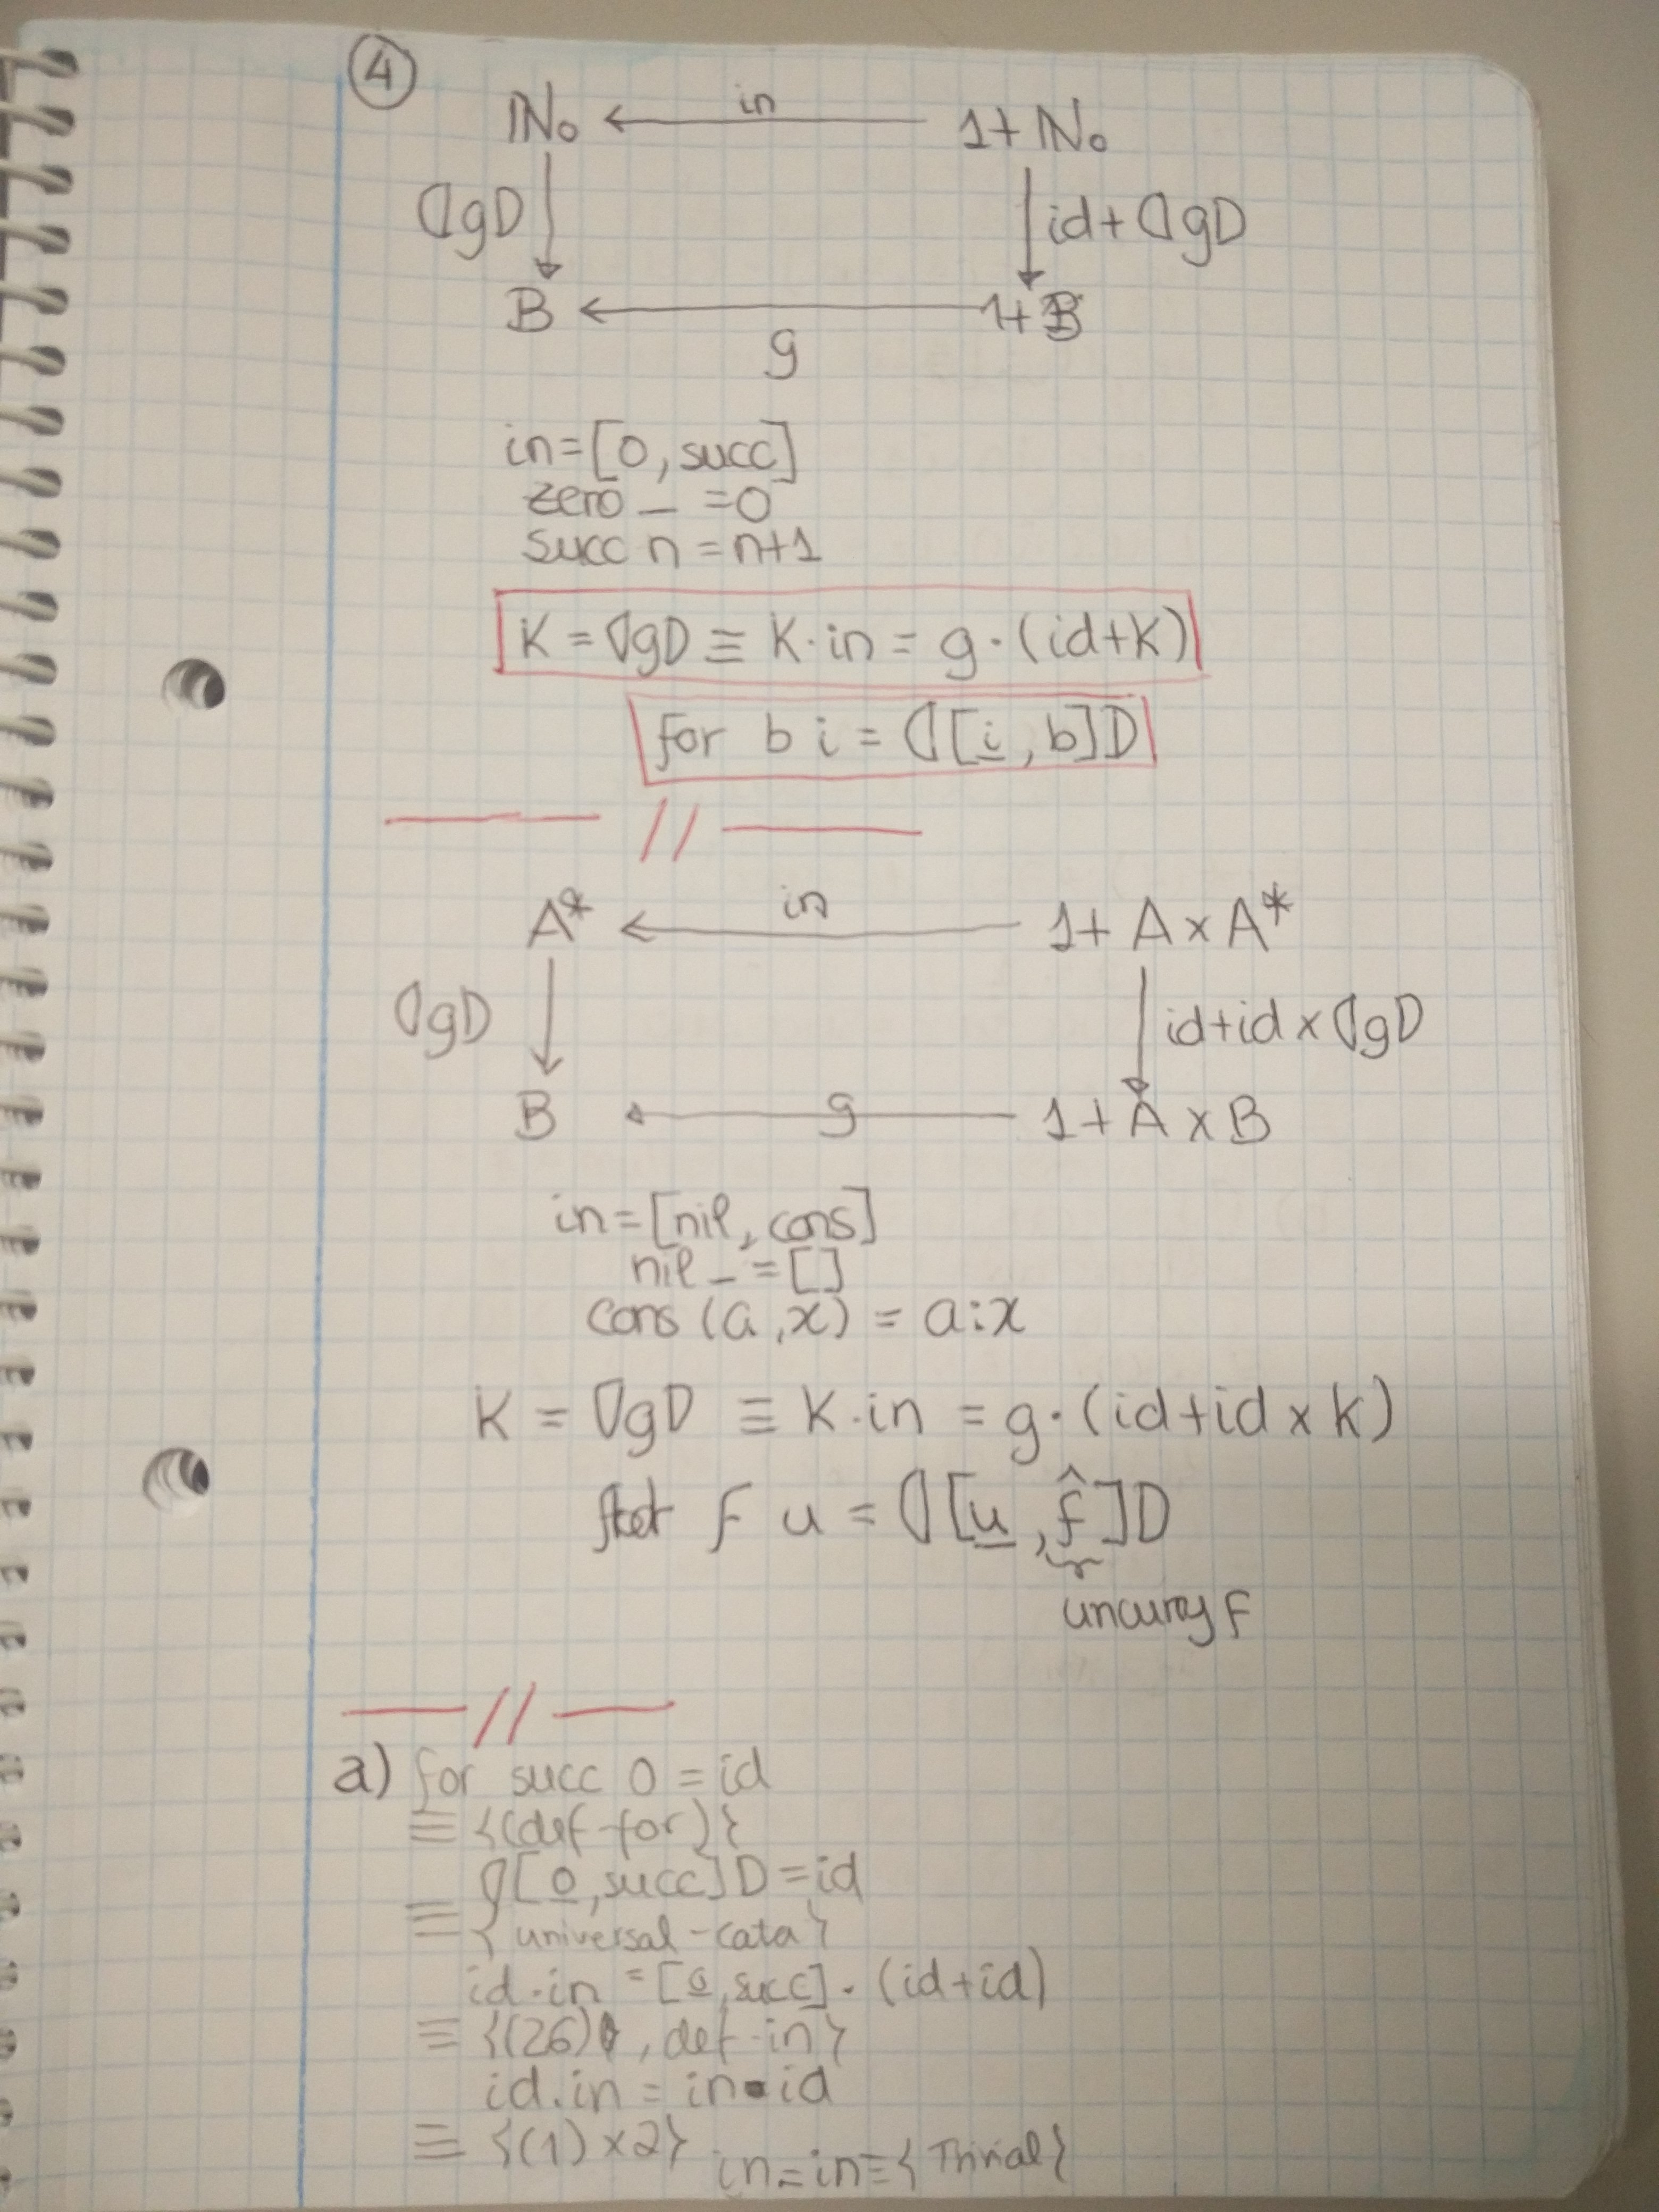 ④
ℕ₀ ←in— 1+ℕ₀
⦇g⦈ ↓ ↓ id+⦇g⦈
B ←— 1+B
g
in=[0,succ]
zero _ =0
succ n =n+1
K=⦇g⦈ ≡ K·in = g·(id+K)
for b i = ⦇[i̲,b]⦈
— // —
A* ←in— 1+A×A*
⦇g⦈ ↓ ↓ id+id×⦇g⦈
B ←g— 1+A×B
in=[nil,cons]
nil _ =[]
cons (a,x) = a:x
K = ⦇g⦈ ≡ K·in = g·(id+id×K)
f u = ⦇[u̲,f̂]⦈
uncurry f
— // —
a) for succ 0 = id
≡ {(def-for)}
⦇[0̲,succ]⦈=id
≡ { universal-cata }
id·in = [0̲,succ]·(id+id)
≡ {(26), def-in}
id.in = in·id
≡ {(1)×2} in=in≡{Trivial}